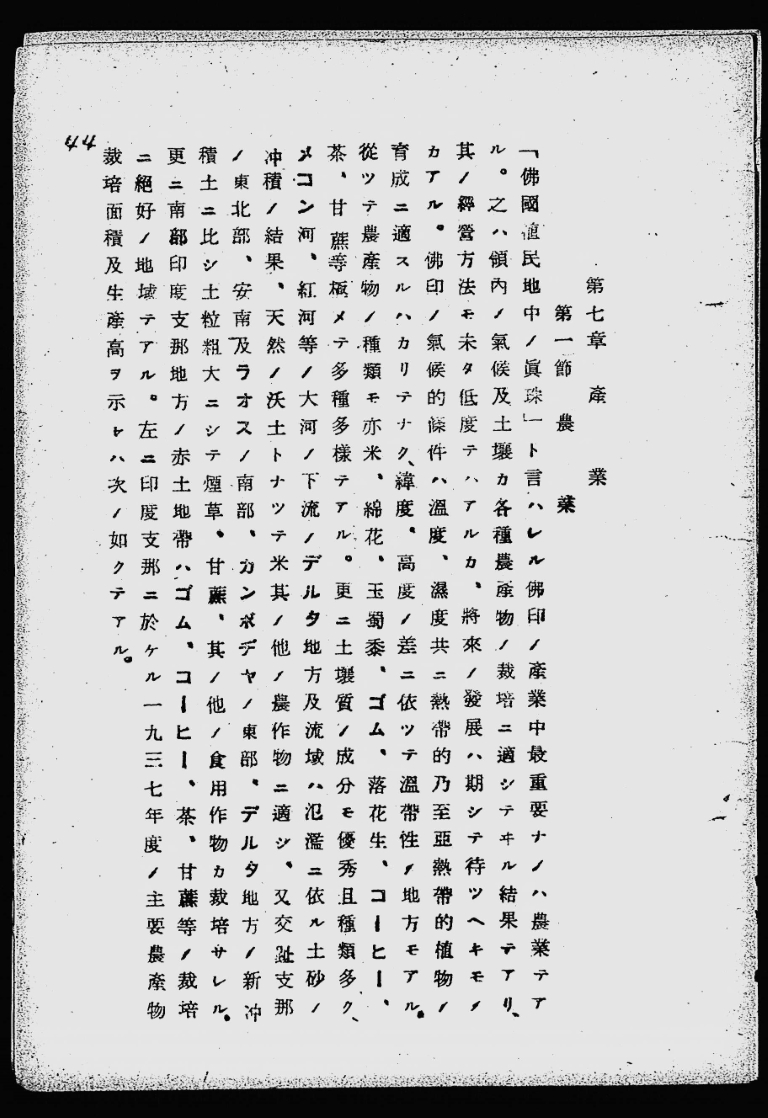 第七章 產業
第一節 農業
「佛國植民地中ノ眞珠」ト言ハレル佛印ノ產業中最重要ナノハ農業テア
ル。之ハ領內ノ氣候及土壤カ各種農產物ノ栽培ニ適シテヰル結果テアリ、
其ノ經營方法モ未タ低度テハアルカ、將來ノ發展ハ期シテ待ツヘキモノ
カアル。佛印ノ氣候的條件ハ溫度、濕度共ニ熱帶的乃至亞熱帶的植物ノ
育成ニ適スルハカリテナク、緯度、高度ノ差ニ依ツテ溫帶性ノ地方モアル。
從ツテ農產物ノ種類モ亦米、綿花、玉蜀黍、ゴム、落花生、コーヒー、
茶、甘蔗等極メテ多種多樣テアル。更ニ土壤質ノ成分モ優秀且種類多ク、
メコン河、紅河等ノ大河ノ下流ノデルタ地方及流域ハ氾濫ニ依ル土砂ノ
沖積ノ結果、天然ノ沃土トナツテ米其ノ他ノ農作物ニ適シ、又交趾支那
ノ東北部、安南及ラオスノ南部、カンボヂヤノ東部、デルタ地方ノ新沖
積土ニ比シ土粒粗大ニシテ煙草、甘蔗、其ノ他ノ食用作物カ栽培サレル。
更ニ南部印度支那地方ノ赤土地帶ハゴム、コーヒー、茶、甘蔗等ノ栽培
ニ絕好ノ地域テアル。左ニ印度支那ニ於ケル一九三七年度ノ主要農產物
栽培面積及生產高ヲ示レハ次ノ如クテアル。
44